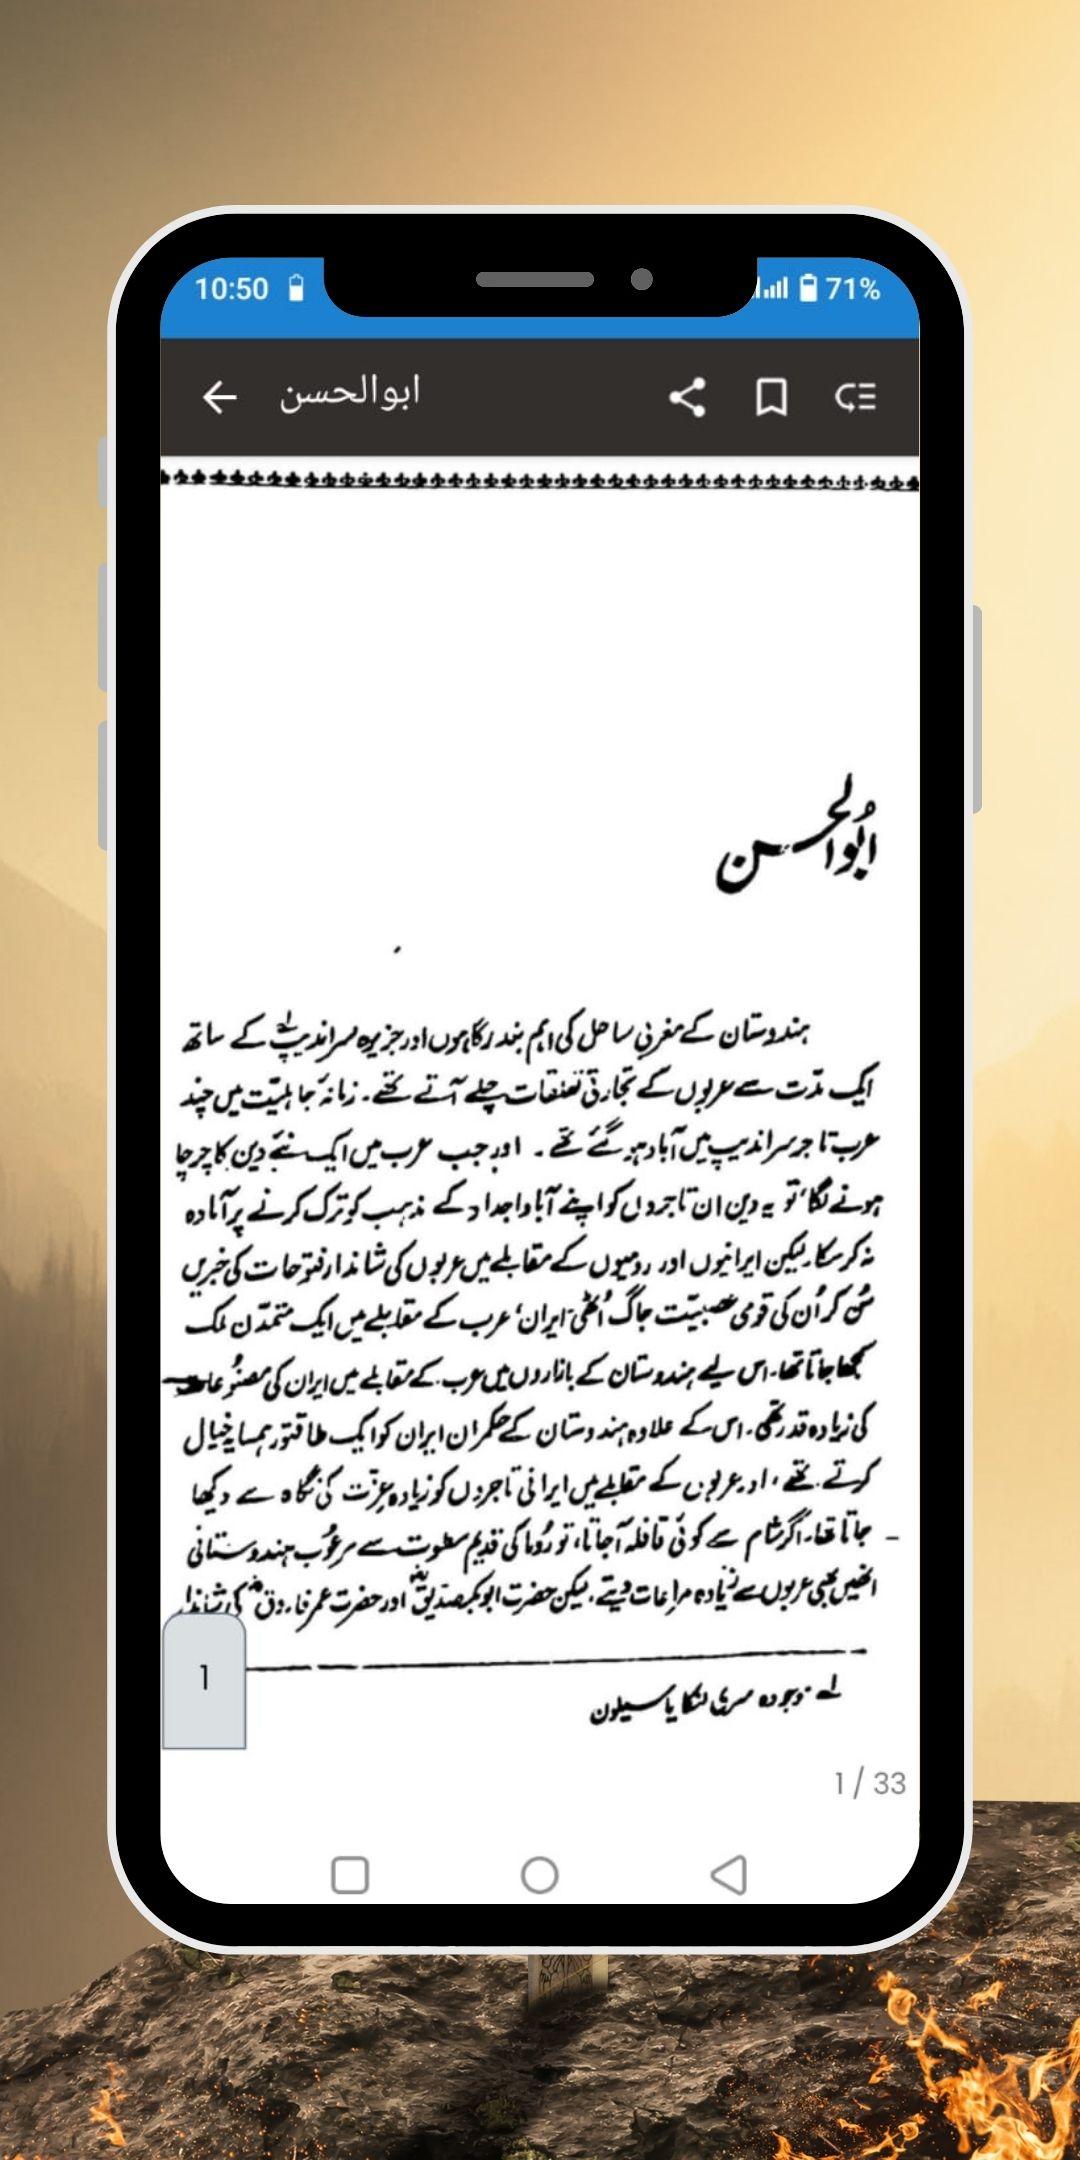 10:50
71%
ابوالحسن
ابُوالحسن
ہندوستان کے مغربی ساحل کی اہم بندرگاہوں اور جزیرہ سراندیپ لے کے ساتھ
ایک مدّت سے عربوں کے تجارتی تعلقات چلے آتے تھے۔ زمانۂ جاہلیّت میں چند
عرب تاجر سراندیپ میں آباد ہو گئے تھے۔ اور جب عرب میں ایک نئے دین کا چرچا
ہونے لگا، تو یہ دین ان تاجروں کو اپنے آباواجداد کے مذہب کو ترک کرنے پر آمادہ
نہ کر سکا۔ لیکن ایرانیوں اور رومیوں کے مقابلے میں عربوں کی شاندار فتوحات کی خبریں
سُن کر اُن کی قومی عصبیّت جاگ اُٹھی۔ ایران، عرب کے مقابلے میں ایک متمدّن ملک
سمجھا جاتا تھا۔ اس لیے ہندوستان کے بازاروں میں عرب کے مقابلے میں ایران کی مصنُوعات
کی زیادہ قدر تھی۔ اس کے علاوہ ہندوستان کے حکمران ایران کو ایک طاقتور ہمسایہ خیال
کرتے تھے، اور عربوں کے مقابلے میں ایرانی تاجروں کو زیادہ عزّت کی نگاہ سے دیکھا
جاتا تھا۔ اگر شام سے کوئی قافلہ آجاتا، تو روما کی قدیم سطوت سے مرعُوب ہندوستانی
انھیں بھی عربوں سے زیادہ مراعات دیتے۔ لیکن حضرت ابوبکر صدیقؓ اور حضرت عمر فاروقؓ کی شاندار
لے موجودہ سری لنکا یا سیلون
1
1 / 33